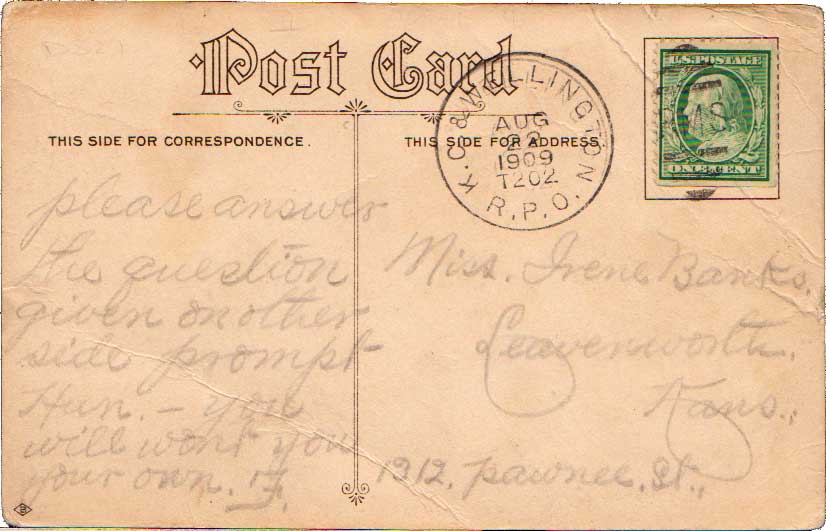 Post Card
THIS SIDE FOR CORRESPONDENCE.
THIS SIDE FOR ADDRESS
K.C. & WELLINGTON
AUG
22
1909
T202
R.P.O.
U.S. POSTAGE
ONE CENT
please answer
the question
given on other
side prompt
Hun. – you
will wont you
your own. F.
Miss. Irene Banks.
Leavenworth.
Kans.,
1912. Pawnee. St.,